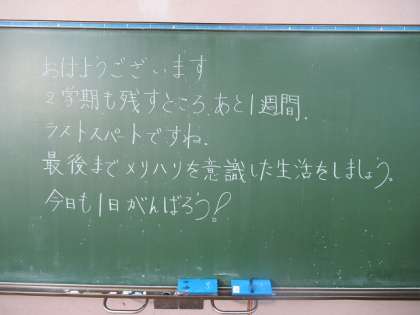 おはようございます
2学期も残すところ、あと1週間.
ラストスパートですね.
最後までメリハリを意識した生活をしましょう。
今日も1日がんばろう!